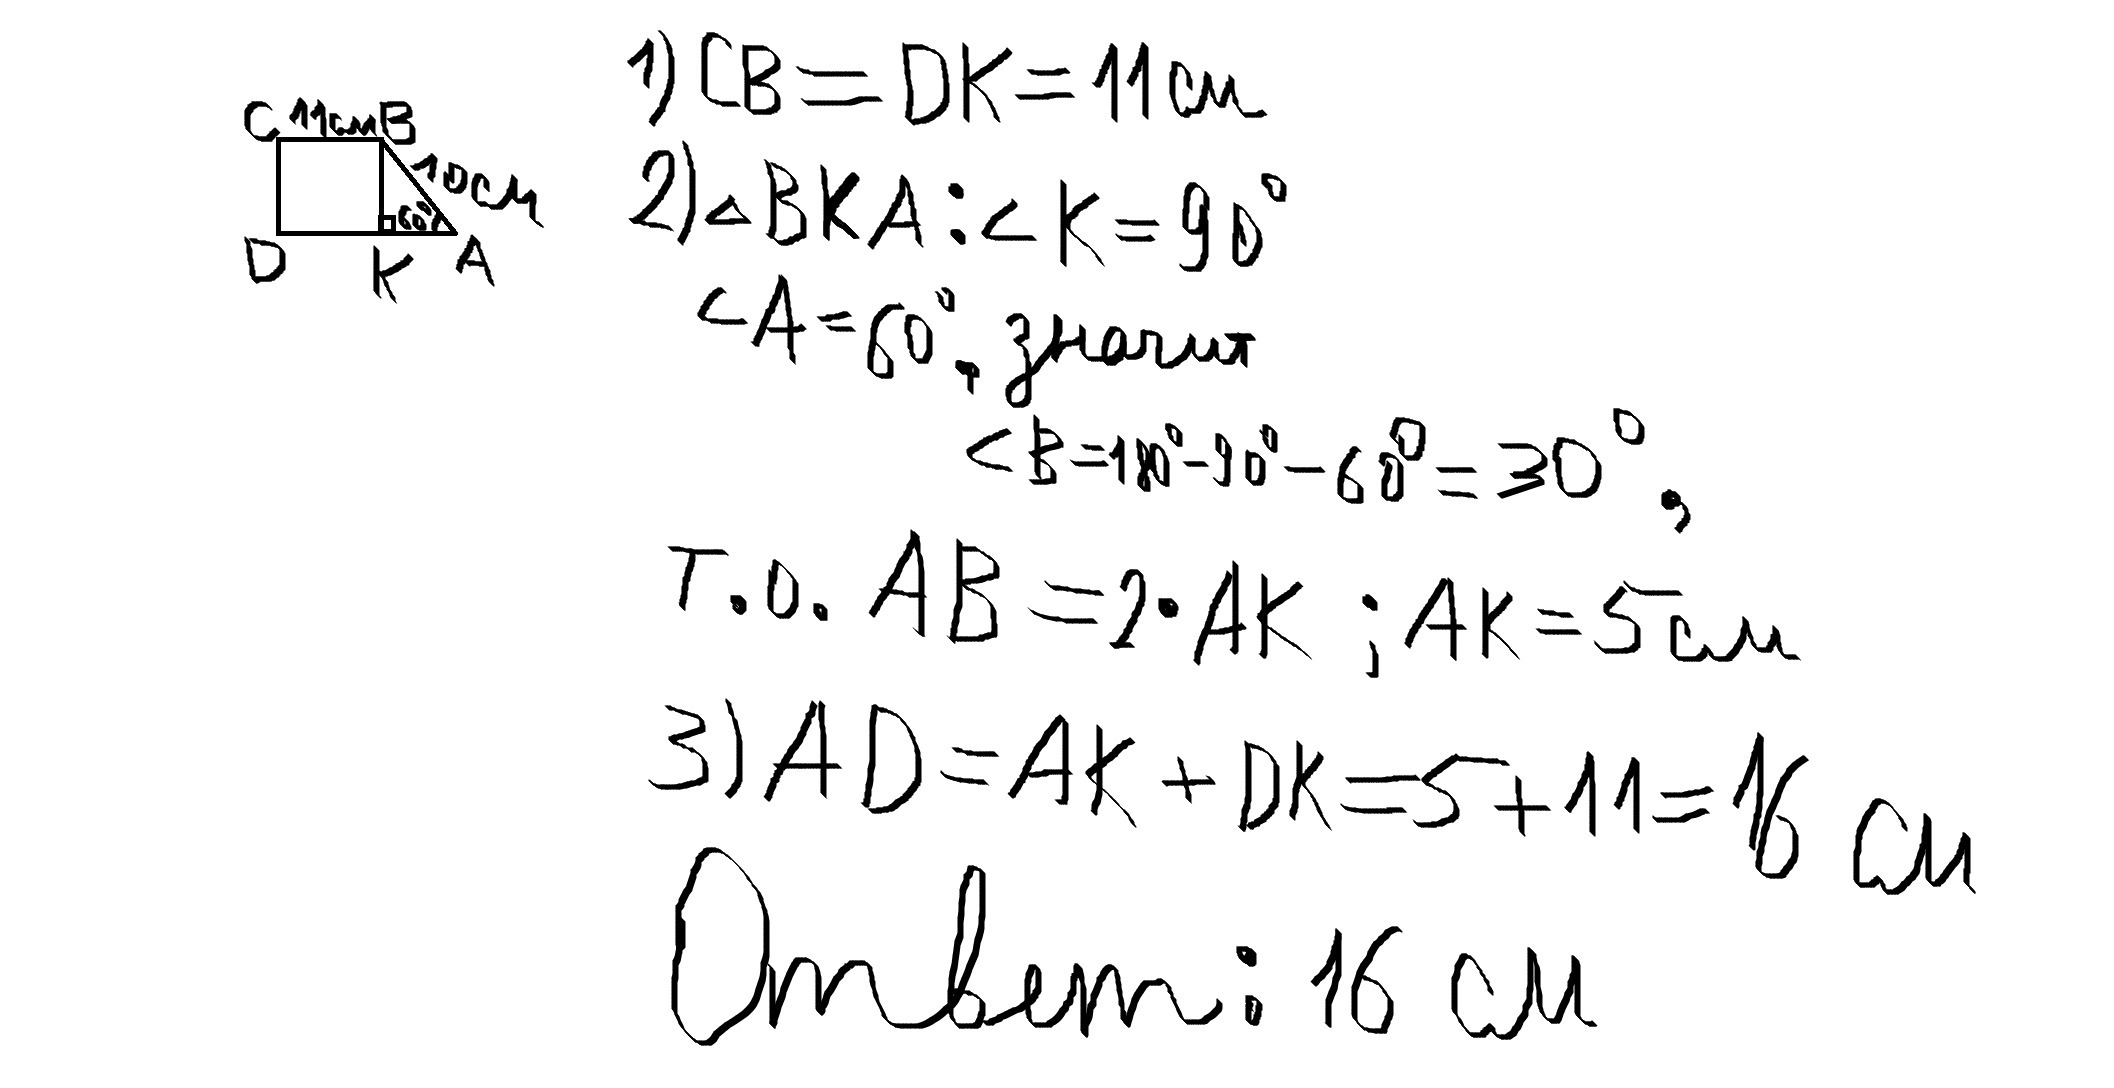 C 11см B
10см
60°
D K A
1) CB = DK = 11 см
2) △ BKA : <K = 90°
<A = 60°, значит
<B = 180° - 90° - 60° = 30°,
Т.О. AB = 2 · AK ; AK = 5 см
3) AD = AK + DK = 5 + 11 = 16 см
Ответ: 16 см